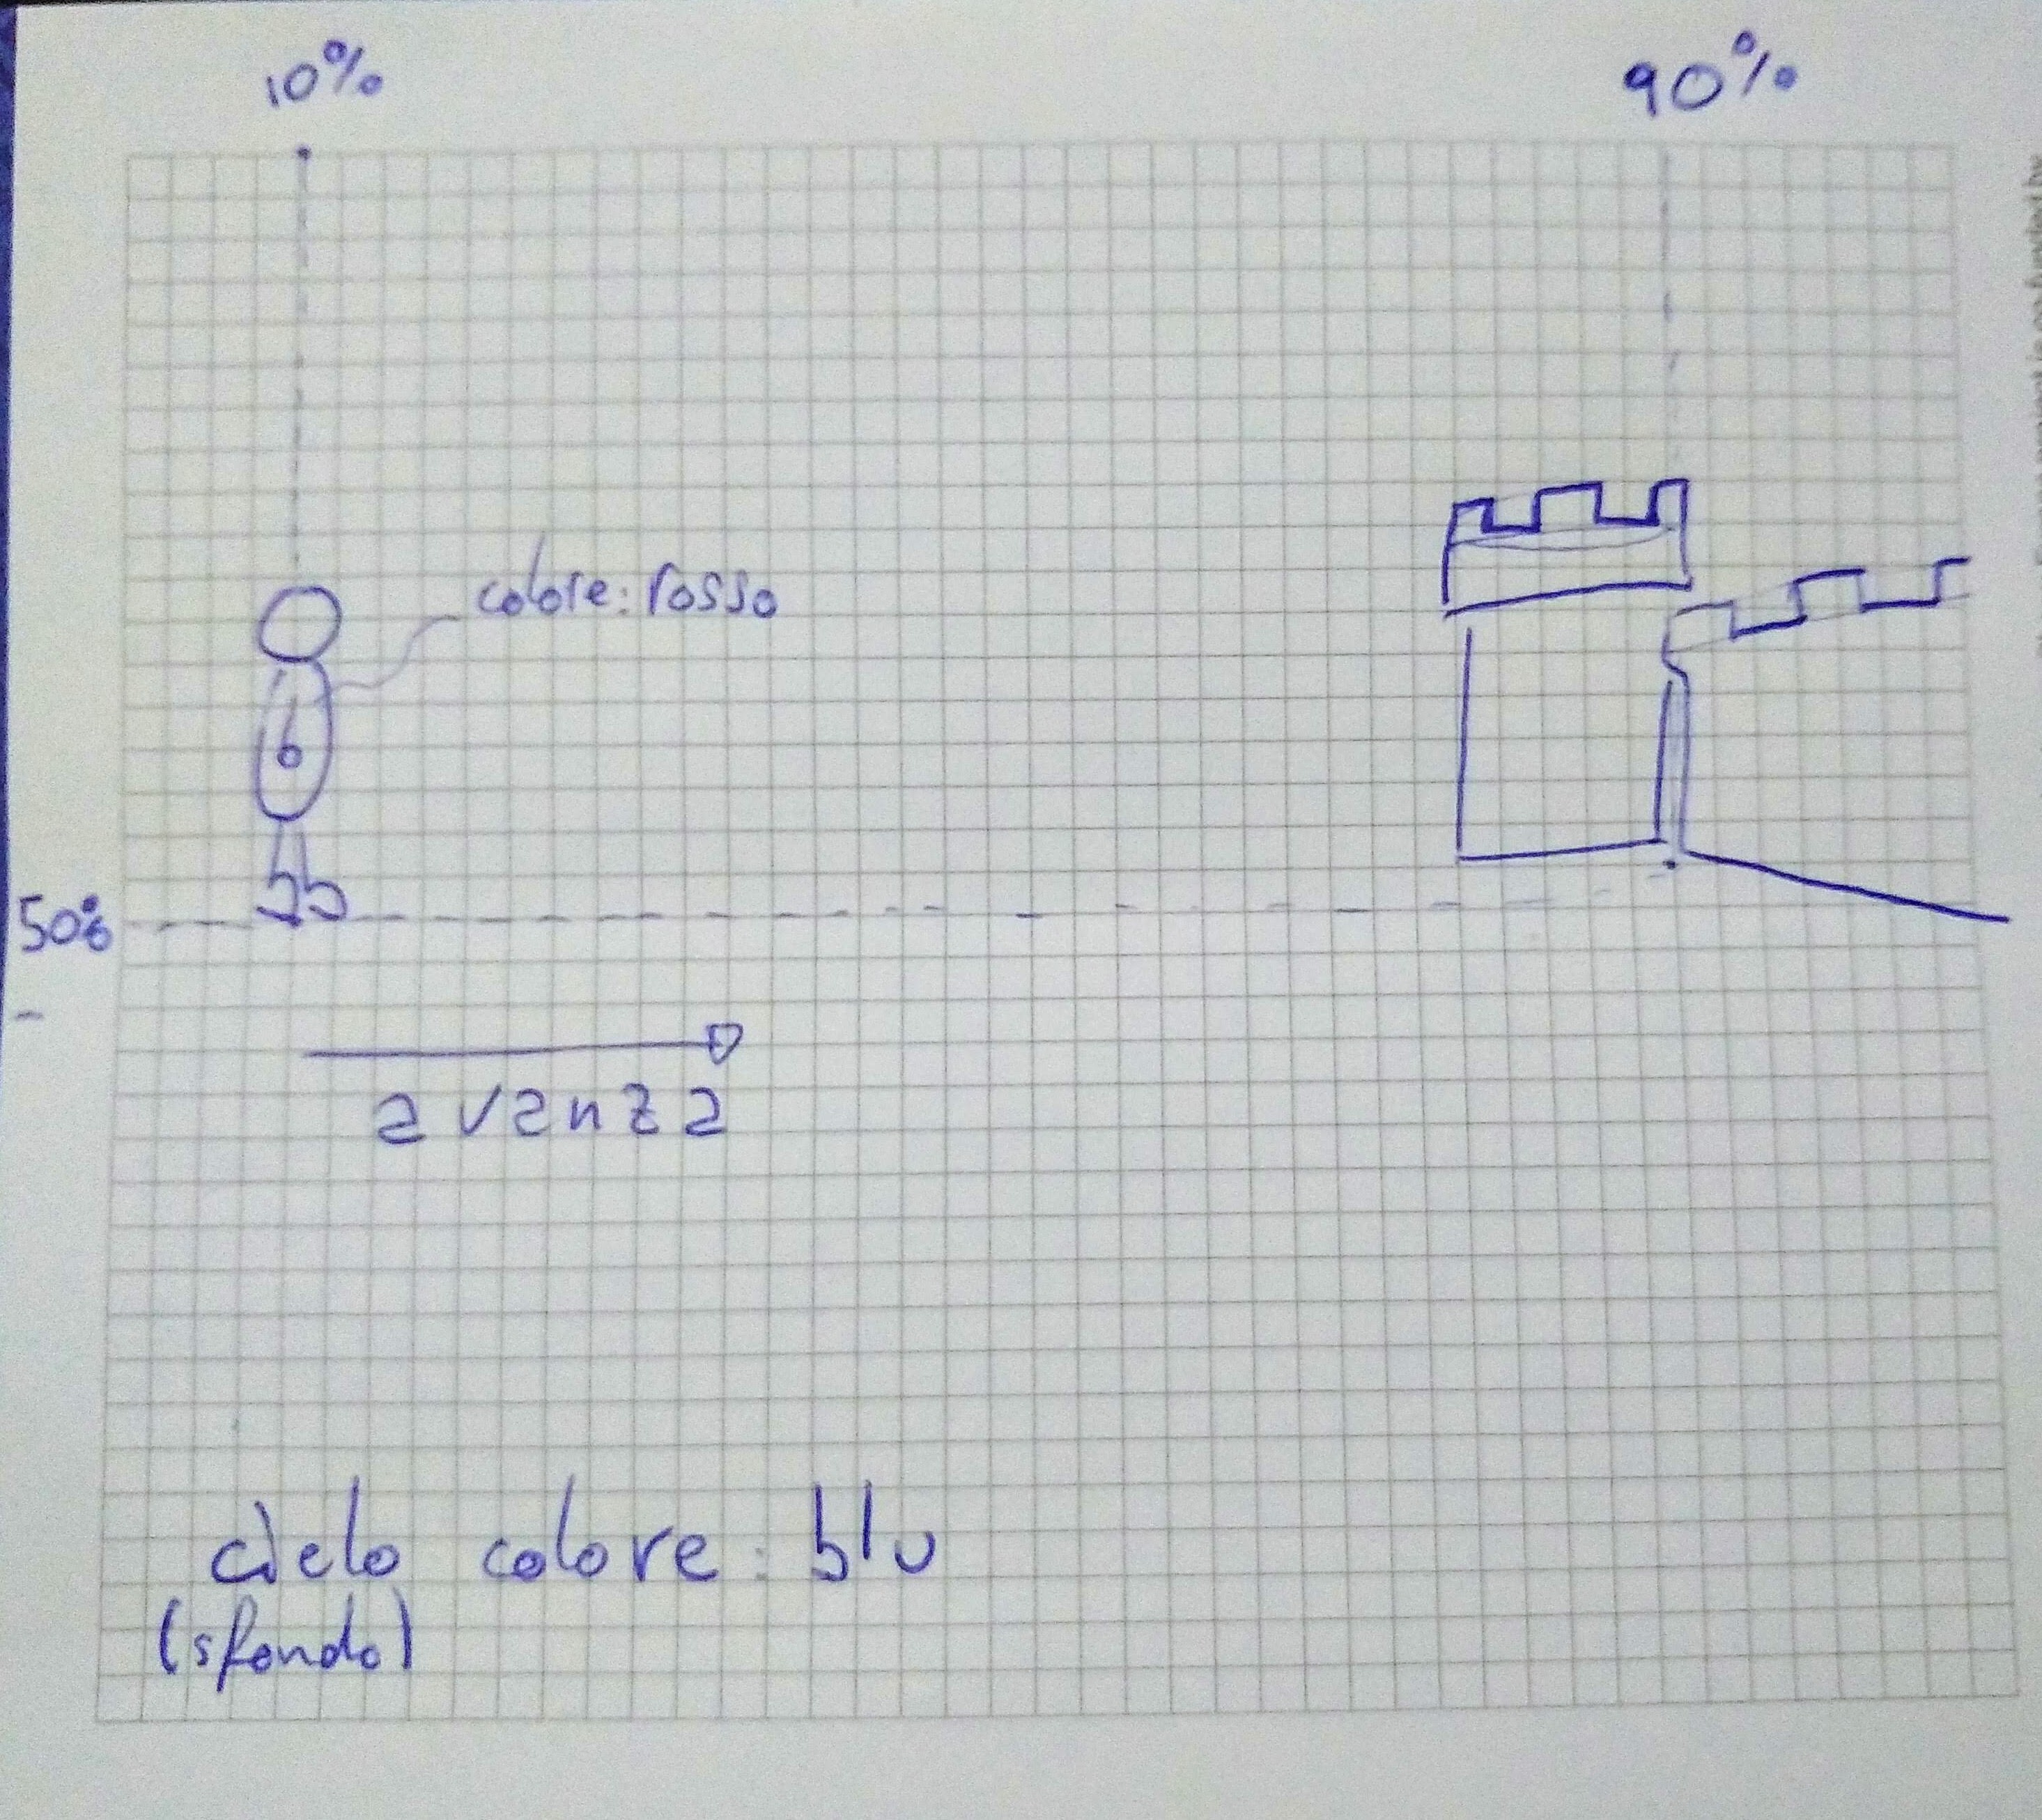 10%
90%
colore: rosso
50%
avanza
cielo colore: blu
(sfondo)